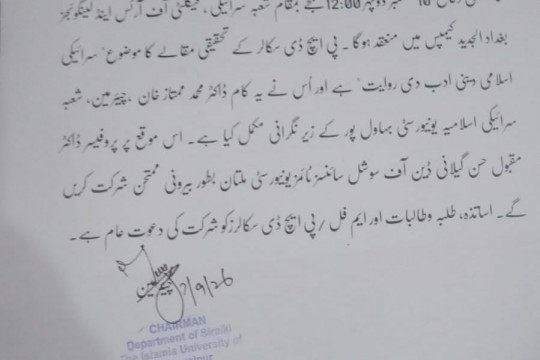 10 ستمبر دوپہر 12:00 بجے بمقام شعبہ سرائیکی، فیکلٹی آف آرٹس اینڈ لینگوئجز
بغداد الجدید کیمپس میں منعقد ہوگا۔ پی ایچ ڈی سکالر کے تحقیقی مقالے کا موضوع ' سرائیکی
اسلامی دینی ادب دی روایت' ہے اور اُس نے یہ کام ڈاکٹر محمد ممتاز خان، چیئرمین، شعبہ
سرائیکی اسلامیہ یونیورسٹی بہاول پور کے زیر نگرانی مکمل کیا ہے۔ اس موقع پر پروفیسر ڈاکٹر
مقبول حسن گیلانی ڈین آف سوشل سائنسز ٹائمز یونیورسٹی ملتان بطور بیرونی ممتحن شرکت کریں
گے۔ اساتذہ، طلبہ وطالبات اور ایم فل / پی ایچ ڈی سکالرز کو شرکت کی دعوت عام ہے۔
چیئرمین
/9/26
CHAIRMAN
Department of Siraiki
The Islamia University of